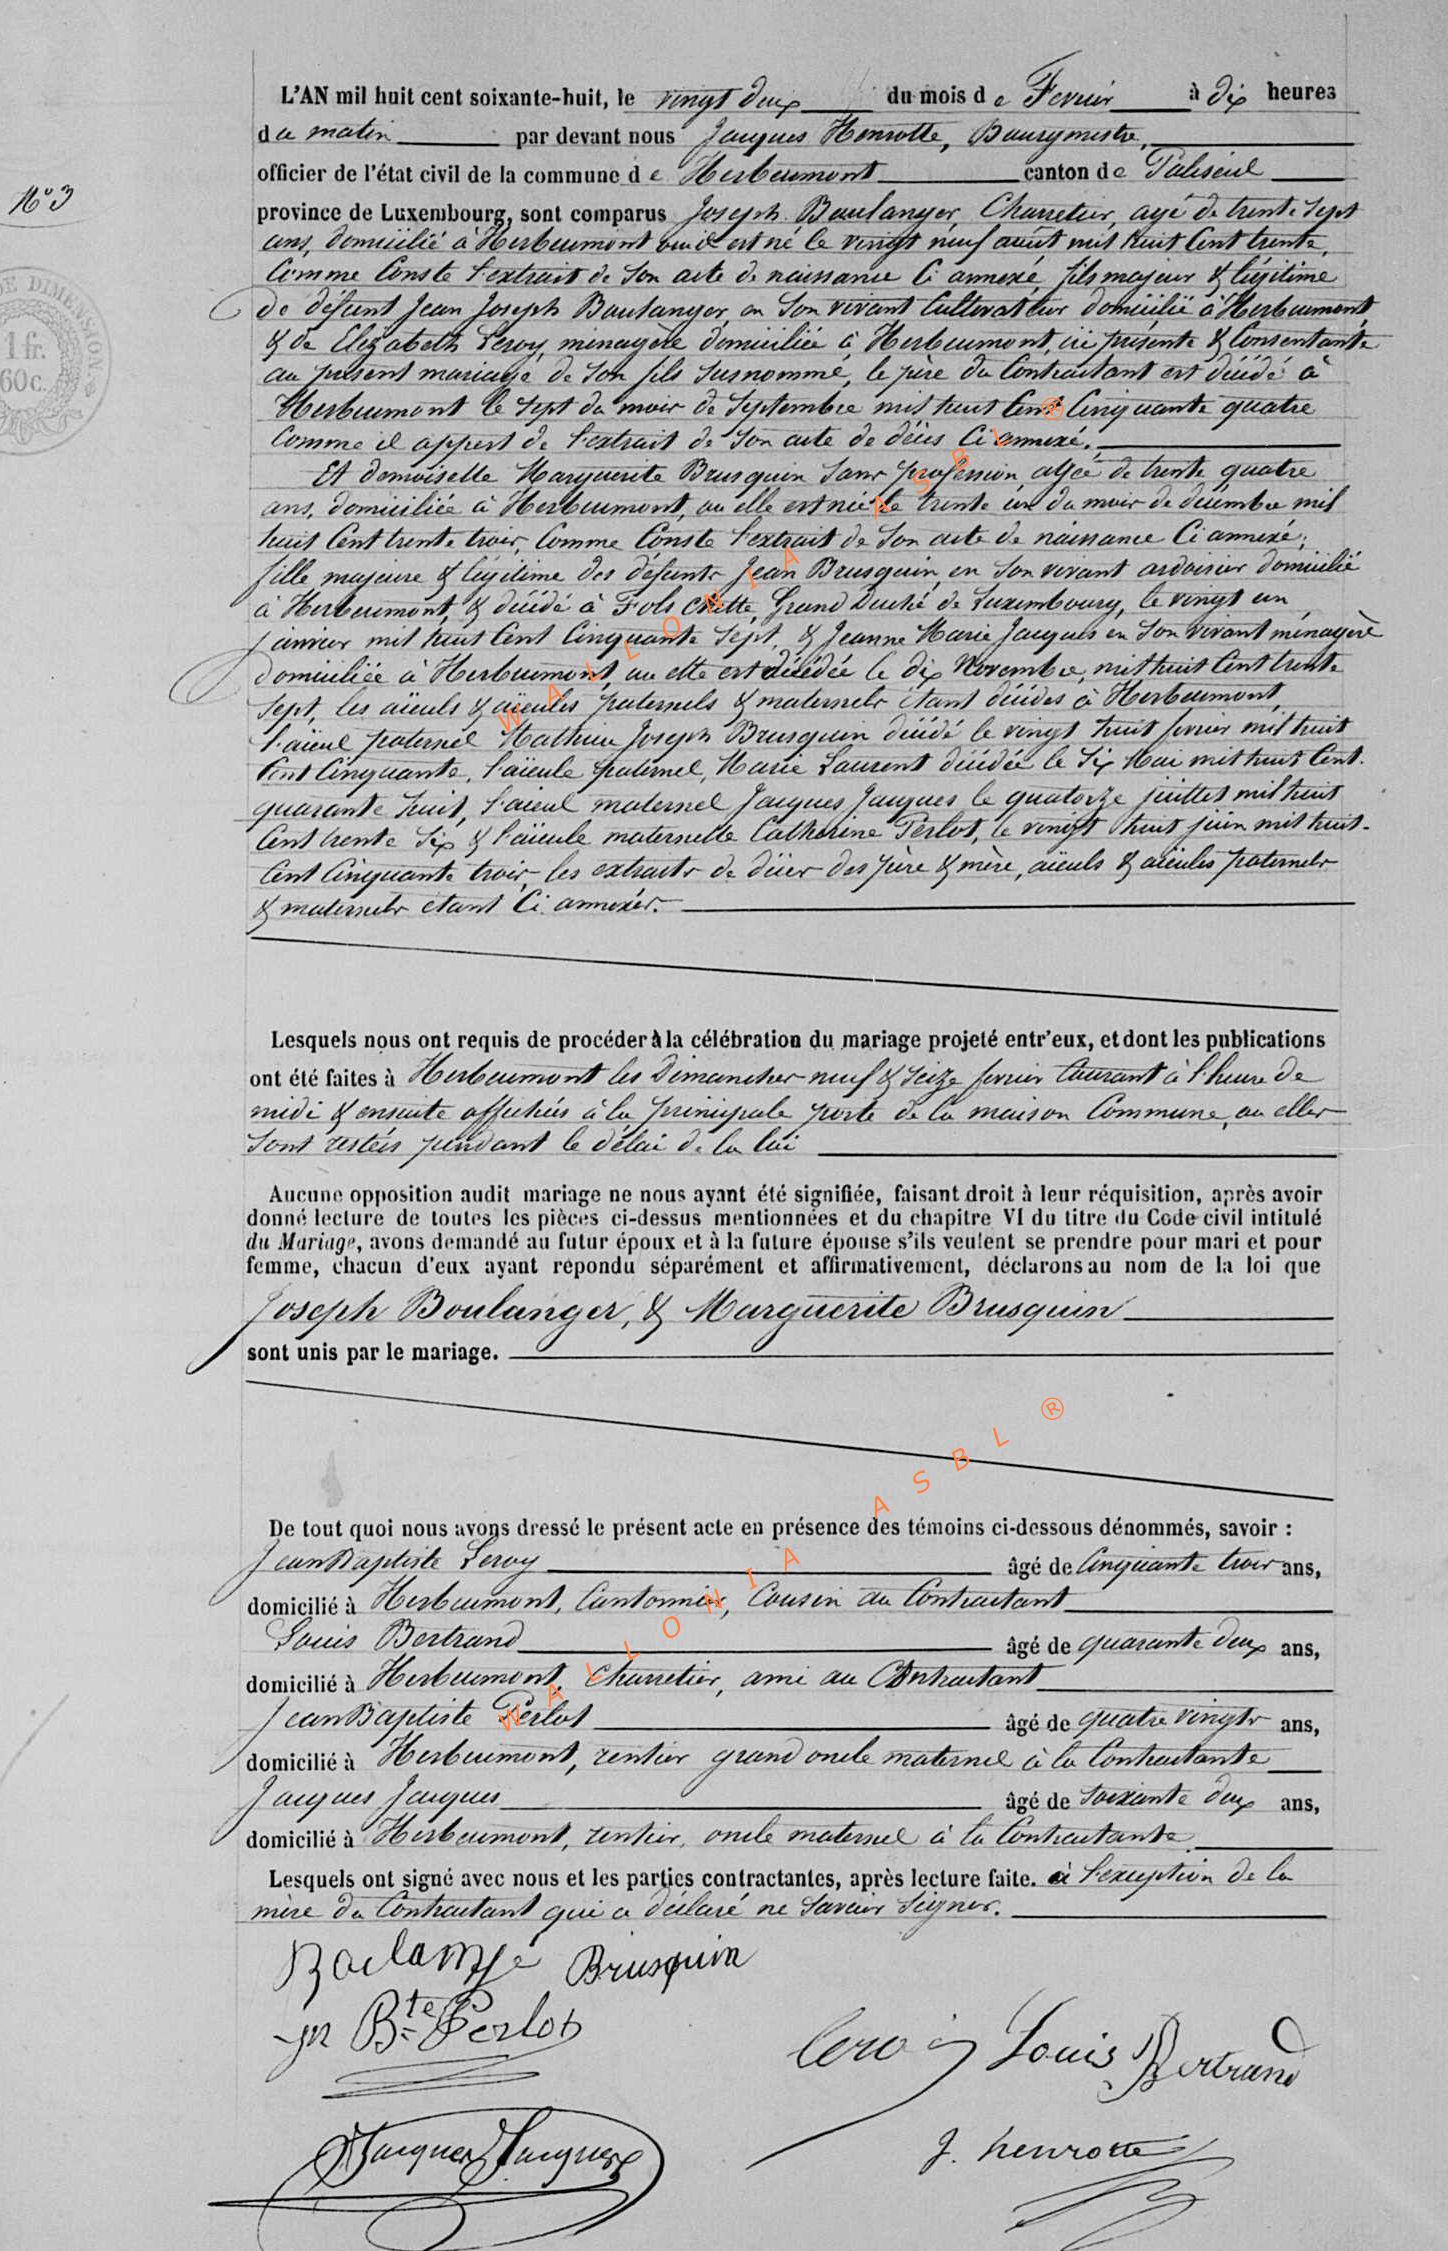 L'AN mil huit cent soixante-huit, le vingt deux du mois de Fevrier à dix heures
du matin par devant nous Jacques Henrotte, Bourgmestre,
officier de l'état civil de la commune de Herbeumont canton de Paliseul
N° 3
province de Luxembourg, sont comparus Joseph Boulanger, Charretier, agé de trente sept
ans, domicilié à Herbeumont ou il est né le vingt neuf août mil huit Cent trente,
Comme Conste l'extrait de Son acte de naissance Ci annexé, fils majeur & légitime
DE DIMENSION
1 fr.
60 c.
de défunt Jean Joseph Boulanger, en Son vivant Cultivateur domicilié à Herbeumont,
& de Elizabeth Leroy, ménagère domiciliée à Herbeumont, ici présente & Consentante
au présent mariage de Son fils Susnommé, le père du Contractant est décédé à
Herbeumont le Sept du mois de Septembre mil huit Cent Cinquante quatre
Comme il appert de l'extrait de Son acte de décès Ci annexé.
Et demoiselle Marguerite Brusquin Sans profession, agée de trente quatre
ans, domiciliée à Herbeumont, ou elle est née le trente un du mois de décembre mil
huit Cent trente trois, Comme Conste l'extrait de Son acte de naissance Ci annexé,
fille majeure & légitime des défunts Jean Brusquin, en Son vivant ardoisier domicilié
à Herbeumont, & décédé à Fols Chette, Grand Duché de Luxembourg, le vingt un
Janvier mil huit Cent Cinquante Sept, & Jeanne Marie Jacques en Son vivant ménagère
domiciliée à Herbeumont, ou elle est décédée le dix Novembre, mil huit Cent trente
Sept, les aïeuls & aïeules paternels & maternels étant décédés à Herbeumont,
l'aïeul paternel Mathieu Joseph Brusquin décédé le vingt huit fevrier mil huit
Cent Cinquante, l'aïeule paternel, Marie Laurent décédée le Six Mai mil huit Cent
quarante huit, l'aïeul maternel Jacques Jacques le quatorze juillet mil huit
Cent trente Six & l'aïeule maternelle Catherine Perlot, le vingt huit juin mil huit
Cent Cinquante trois, les extraits de décès des père & mère, aïeuls & aïeules paternels
& maternels étant Ci annexés.
Lesquels nous ont requis de procéder à la célébration du mariage projeté entr'eux, et dont les publications
ont été faites à Herbeumont les Dimanches neuf & Seize fevrier Courant à l'heure de
midi & ensuite affichées à la principale porte de la maison Commune, ou elles
Sont restées pendant le délai de la loi
Aucune opposition audit mariage ne nous ayant été signifiée, faisant droit à leur réquisition, après avoir
donné lecture de toutes les pièces ci-dessus mentionnées et du chapitre VI du titre du Code civil intitulé
du Mariage, avons demandé au futur époux et à la future épouse s'ils veulent se prendre pour mari et pour
femme, chacun d'eux ayant répondu séparément et affirmativement, déclarons au nom de la loi que
Joseph Boulanger, & Marguerite Brusquin
sont unis par le mariage.
De tout quoi nous avons dressé le présent acte en présence des témoins ci-dessous dénommés, savoir :
Jean Baptiste Leroy âgé de Cinquante trois ans,
domicilié à Herbeumont, Cantonnier, Cousin au Contractant
Louis Bertrand âgé de quarante deux ans,
domicilié à Herbeumont, Charretier, ami au Contractant
Jean Baptiste Perlot âgé de quatre vingts ans,
domicilié à Herbeumont, rentier grand oncle maternel à la Contractante
Jacques Jacques âgé de Soixante deux ans,
domicilié à Herbeumont, rentier, oncle maternel à la Contractante
Lesquels ont signé avec nous et les parties contractantes, après lecture faite. à l'exception de la
mère du Contractant qui a déclaré ne Savoir Signer.
Brusquin
Jn Bte Perlot
Leroy Louis Bertrand
Jacques Jacques
J. henrotte
WALLONIA ASBL ®
WALLONIA ASBL ®